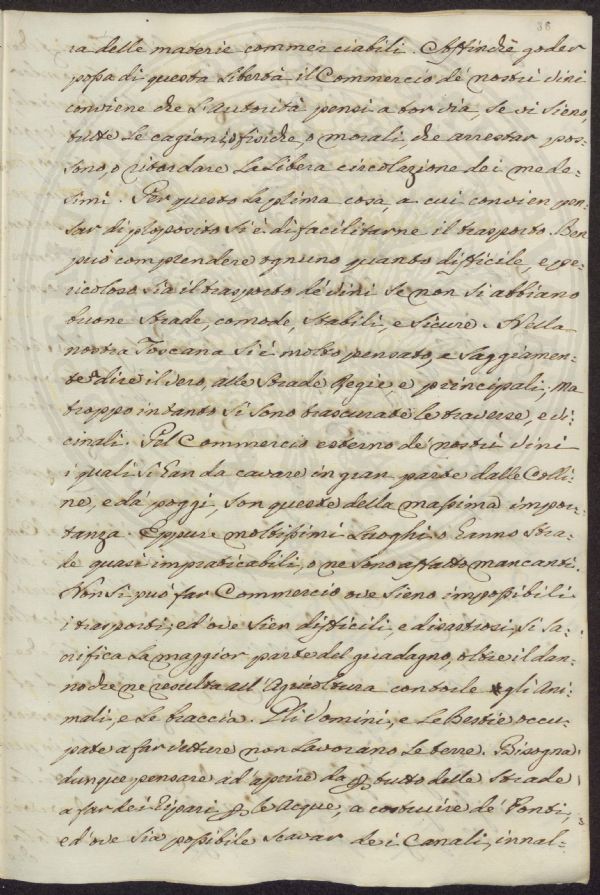 38
ra delle materie commerciabili. Affinchè goder
possa di questa libertà il Commercio de' nostri vini
conviene che l'autorità pensi a tor via, se vi sieno,
tutte le cagioni, o fisiche, o morali, che arrestar pos=
sono, o ritardare la libera circolazione dei mede=
simi. Per questo la prima cosa, a cui convien pen=
sar di proposito si è di facilitarne il trasporto. Ben
può comprendere ognuno quanto difficile, e pe=
ricoloso sia il trasporto de' vini se non si abbiano
buone strade, comode, stabili, e sicure. Nella
nostra Toscana si è molto pensato, e saggiamen=
te a dire il vero, alle Strade Regie e principali; ma
troppo intanto si sono trascurate le traverse, e vi=
cinali. Pel Commercio esterno de' nostri vini
i quali si han da cavare in gran parte dalle Colli=
ne, e da' poggi, son queste della massima impor=
tanza. Eppure moltissimi luoghi o hanno stra=
de quasi impraticabili, o ne sono affatto mancanti.
Non si può far Commercio ove sieno impossibili
i trasporti; ed ove sien difficili, e disastrosi, si sa=
crifica la maggior parte del guadagno, oltre il dan=
no che ne resulta all'Agricoltura con torle gli Ani=
mali, e le braccia. Gli Uomini, e le Bestie occu=
pate a far vetture non lavorano le terre. Bisogna
dunque pensare ad aprire da p tutto delle Strade
a far dei Ripari p le acque, a costruire de' Ponti,
ed ove sia possibile scavar dei Canali, innal=